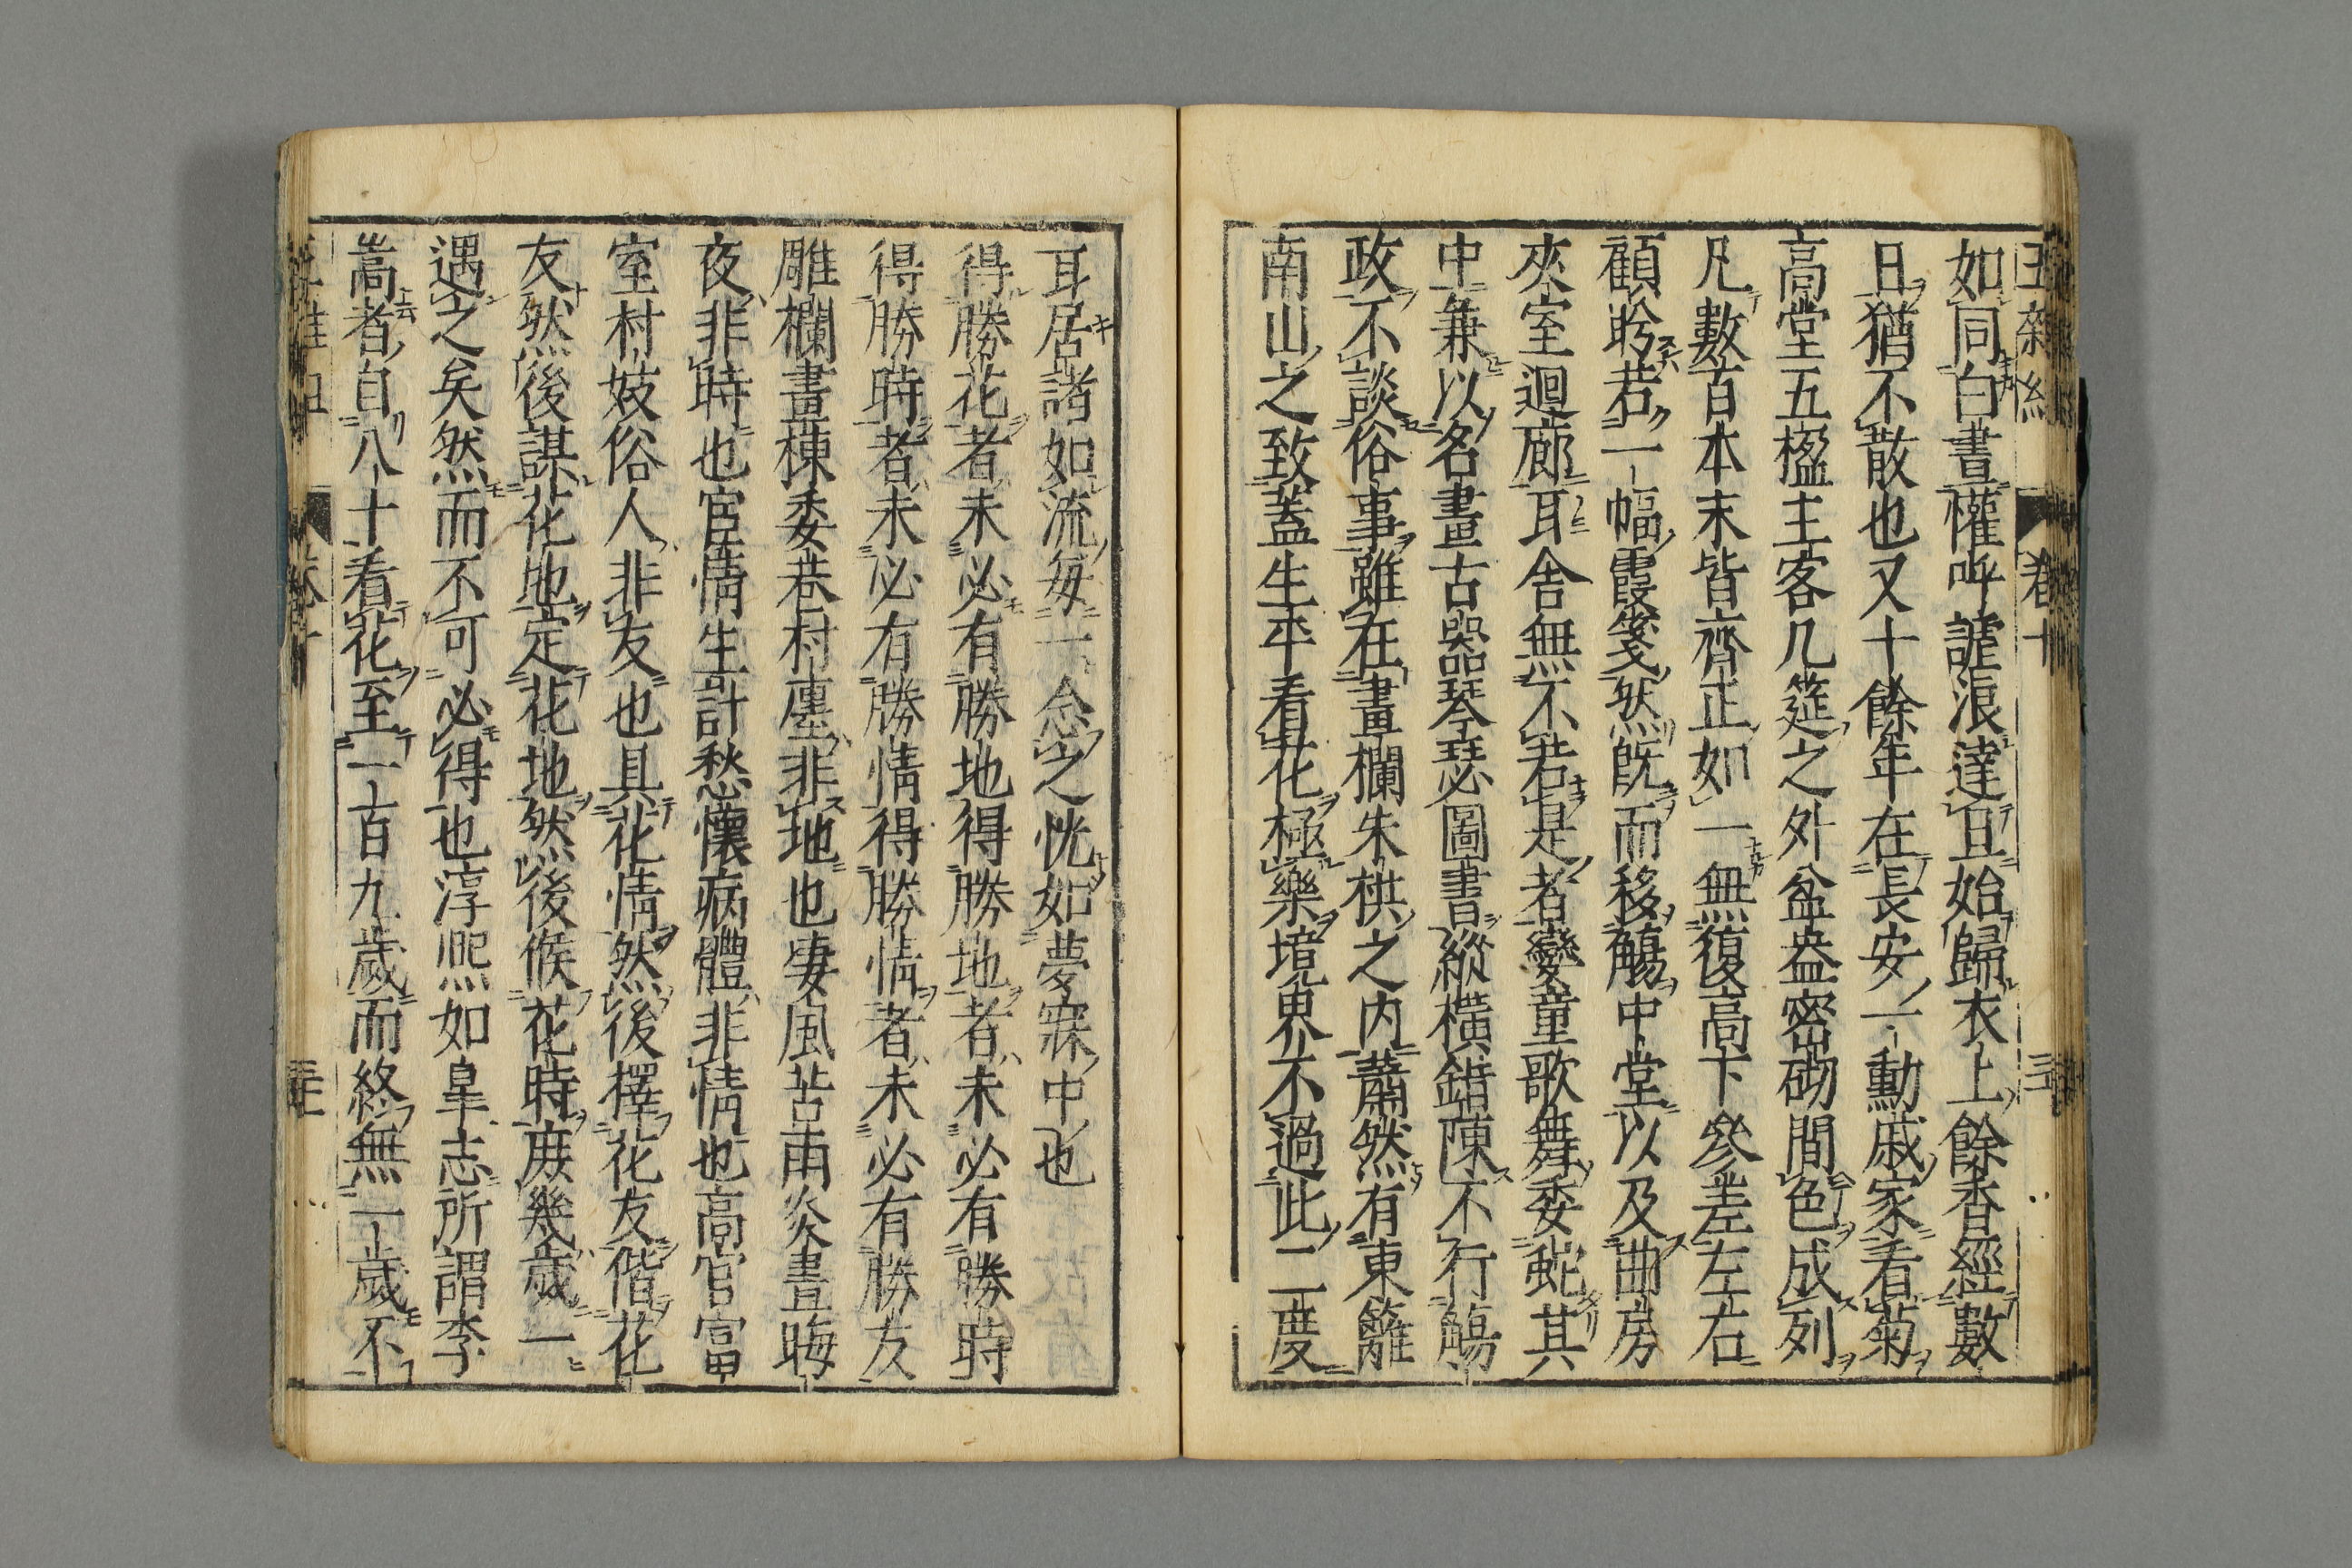 如同白晝懽呼謔浪達旦始歸衣上餘香經數
日猶不散也又十餘年在長安一勳戚家看菊
高堂五楹主客几筵之外盆盎密砌間色成列
凡數百本末皆齊正如一無復高下參差左右
顧盻若一幅霞箋然既而移觴中堂以及曲房
夾室迴廊耳舍無不若是者孌童歌舞委蛇其
中兼以名畫古器琴瑟圖書縱橫錯陳不行觴
政不談俗事雖在畫欄朱栱之内蕭然有東籬
南山之致蓋生平看花極樂境界不過此二度
耳居諸如流每一念之恍如夢寐中也
得勝花者未必有勝地得勝地者未必有勝時
得勝時者未必有勝情得勝情者未必有勝友
雕欄畫棟委巷村廛非地也凄風苦雨炎晝晦
夜非時也宦情生計愁懷病體非情也高官富
室村妓俗人非友也具花情然後擇花友偕花
友然後謀花地定花地然後候花時庶幾歲一
遇之矣然而不可必得也淳熙如皐志所謂李
嵩者自八十看花至一百九歲而終無一歲不